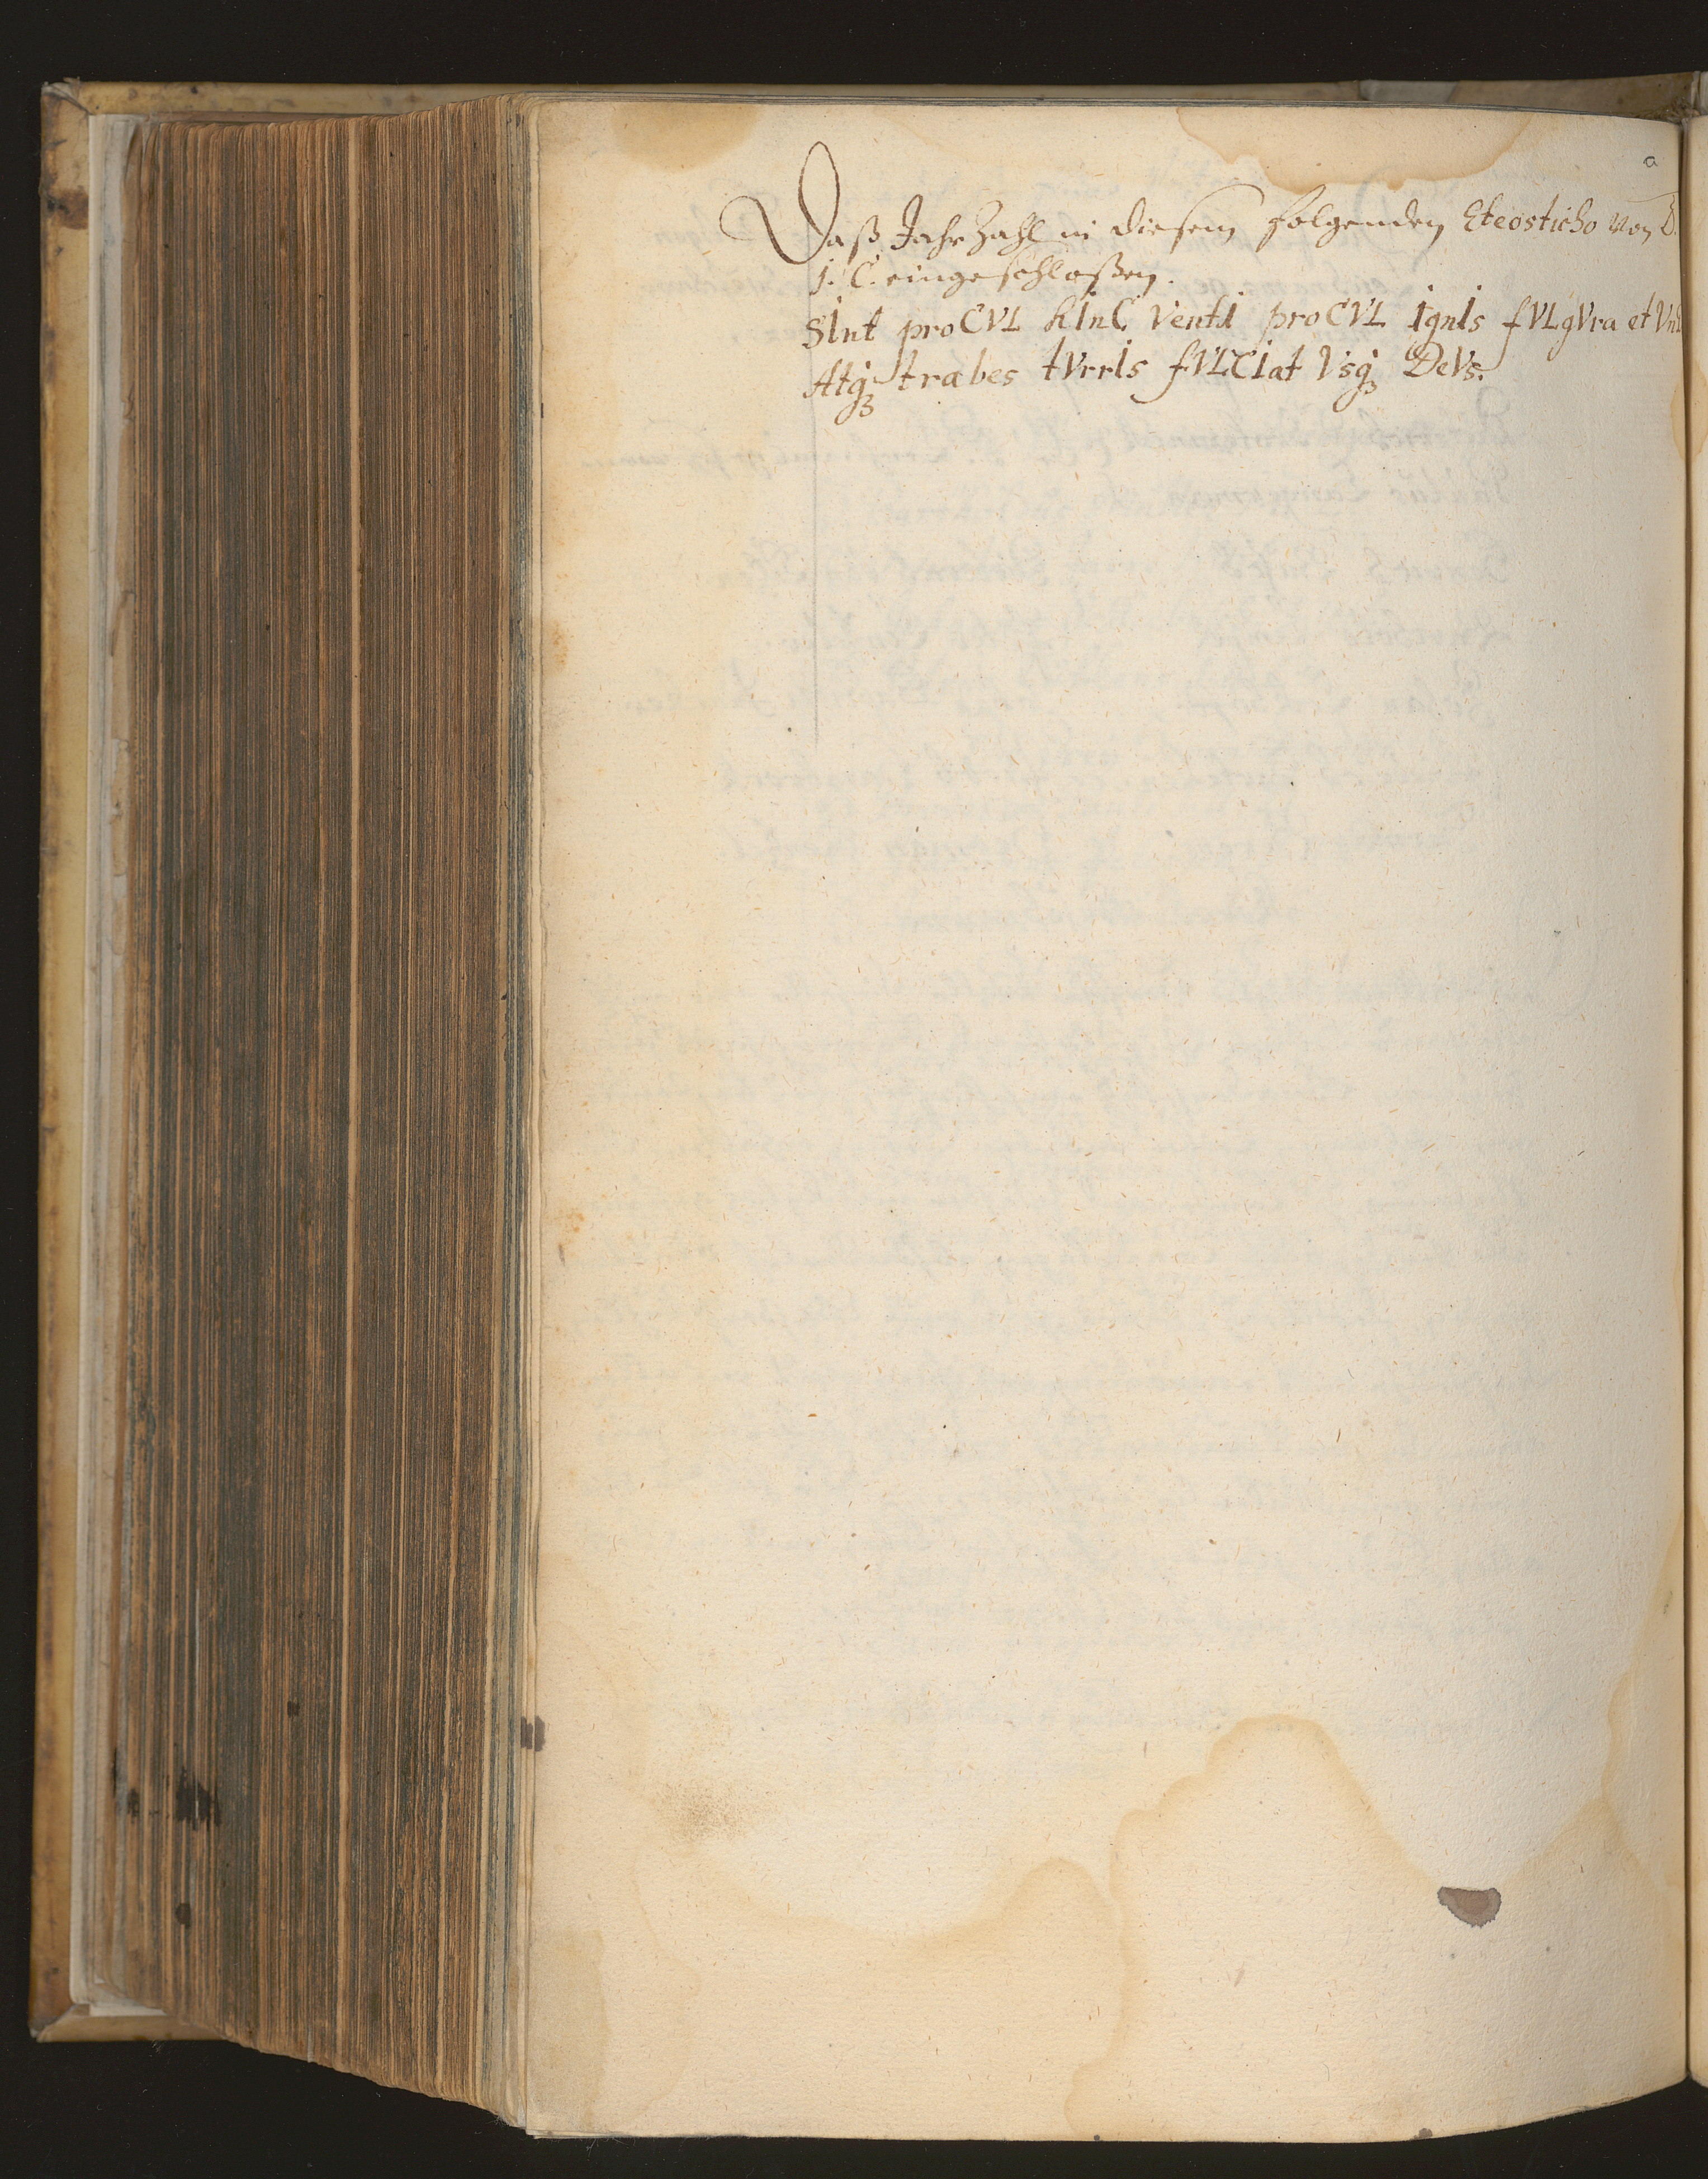 a
Daß Jahr Zahl in diesem folgenden Eteosticho von D.
J. C. eingeschloßen.
SInt proCVL hInC VentI proCVL IgnIs fVLgVra et Vn
Atqꝫ trabes tVrrIs fVLCIat Vsqꝫ DeVs.